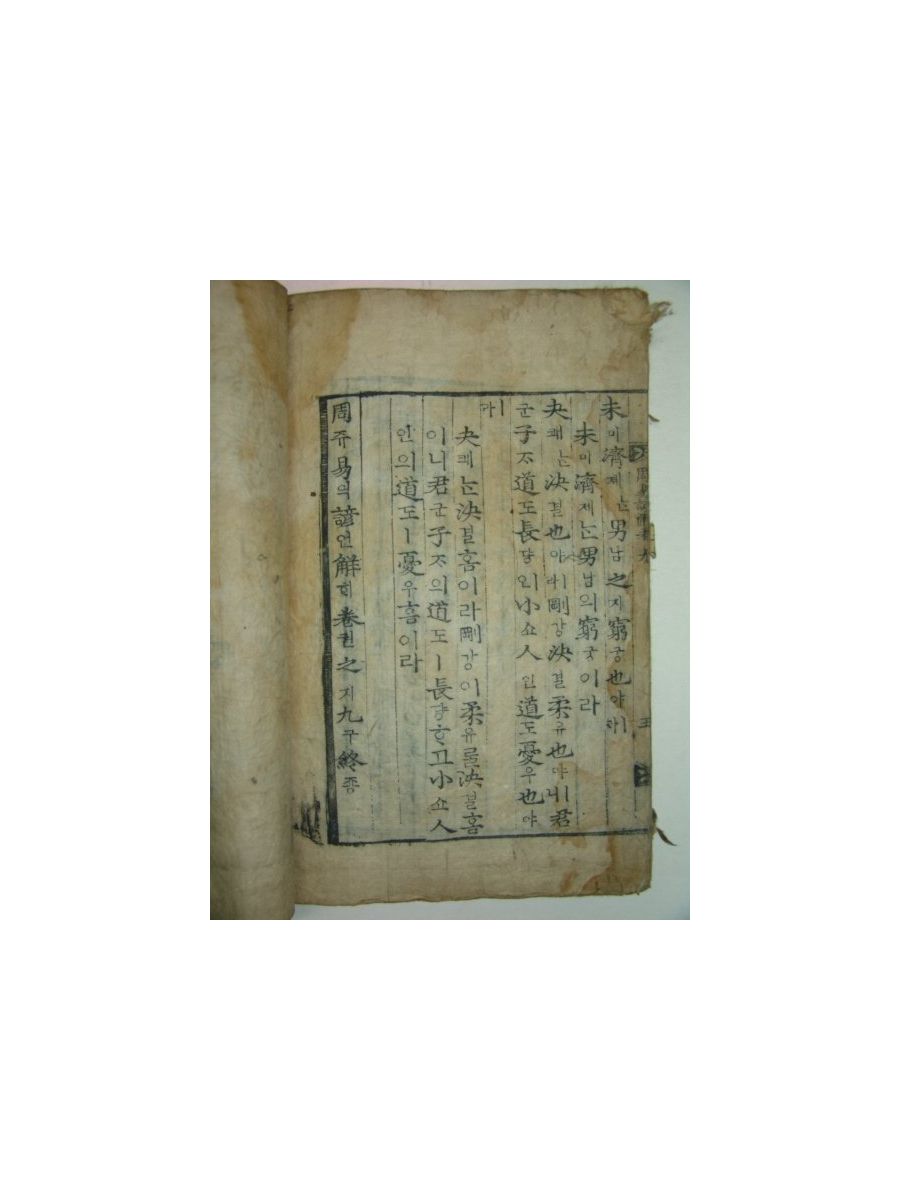 未미濟제는男남之지窮궁也야ㅣ라
未미濟제는男남의窮궁이라
夬쾌는決결也야ㅣ라剛강決결柔유也야ㅣ니君
군子ᄌᆞ道도長댱이오小쇼人인道도憂우也야
ㅣ라
夬쾌는決결홈이라剛강이柔유ᄅᆞᆯ決결홈
이니君군子ᄌᆞ의道도ㅣ長댱ᄒᆞ고小쇼人
인의道도ㅣ憂우홈이라
周쥬易역諺언解ᄒᆡ卷권之지九구終죵